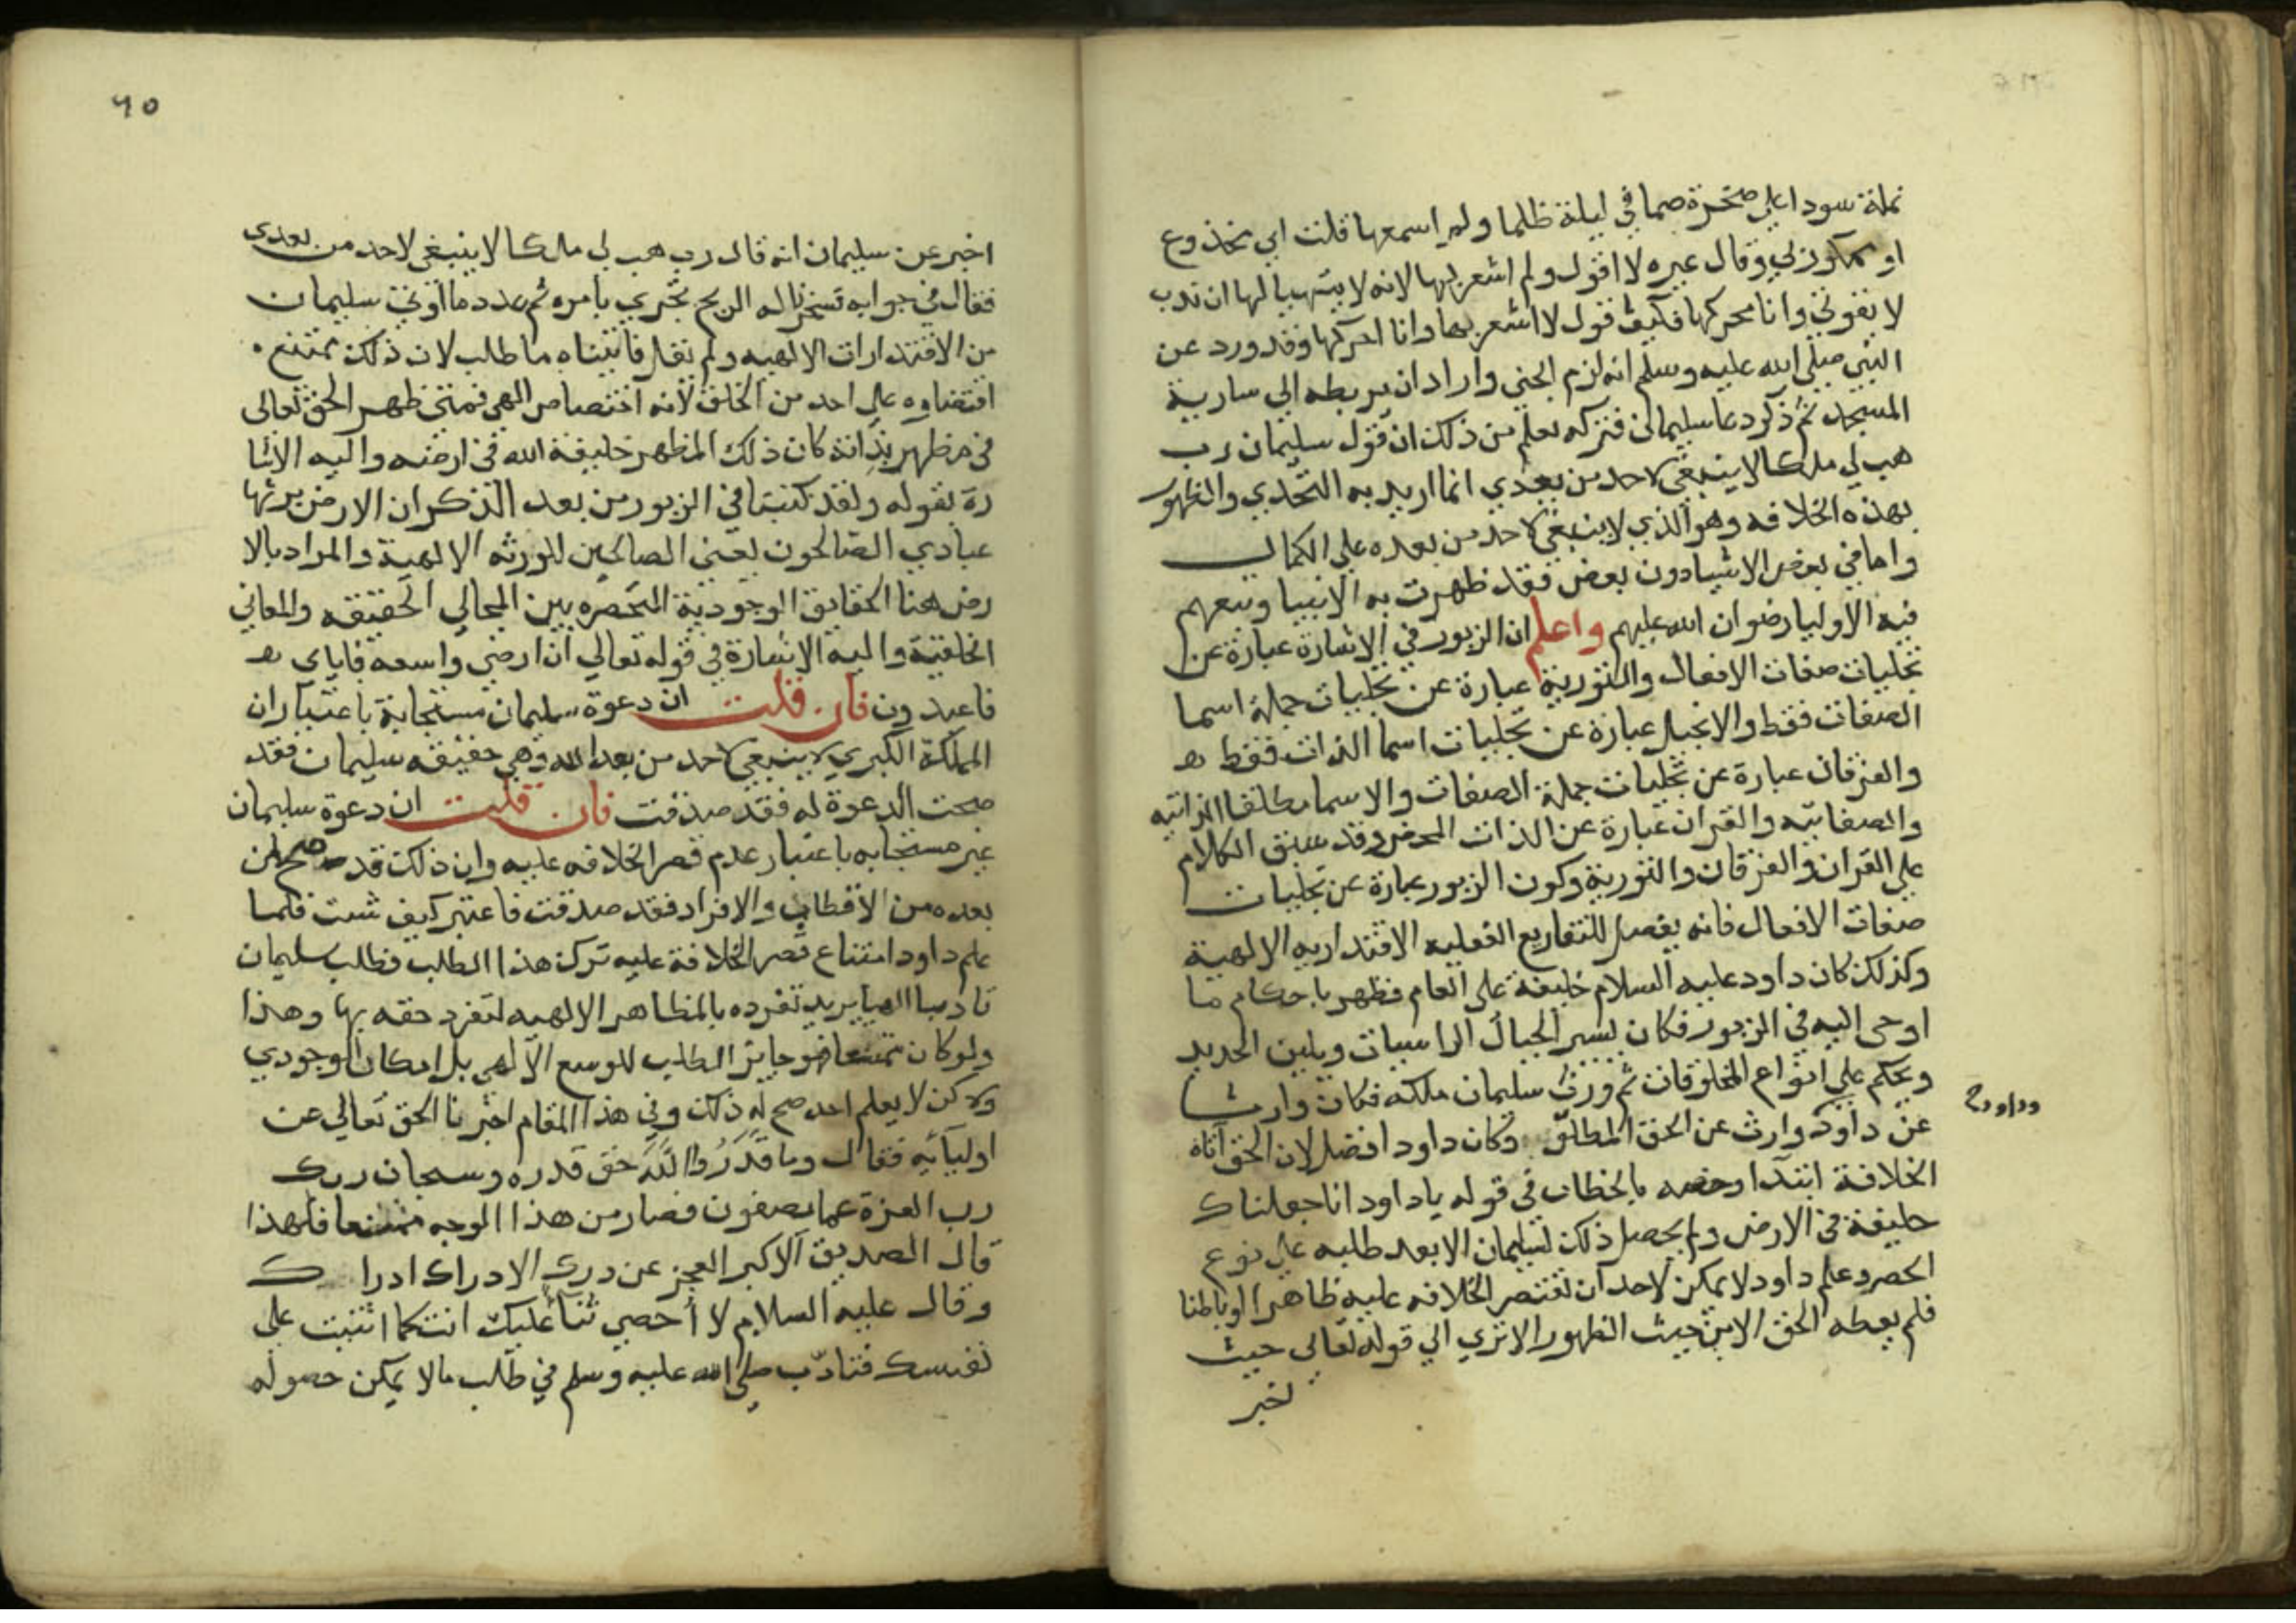 نملة سودا على صخرة صما في ليلة ظلما ولم اسمعها قلت اني مخدوع
او ممكور بي وقال غيره لا اقول ولم اشعر بها لانه لا يتهيا لها ان تدب
لا بقوتي وانا محركها فكيف قول لا اشعر بها وانا احركها وقد ورد عن
النبي صلى الله عليه وسلم انه لزم الجني واراد ان يربطه الى سارية
المسجد ثم ذكر دعا سليمان فتركه تعلم من ذلك ان قول سليمان رب
هب لي ملكا لا ينبغي لاحد من بعدي انما اريد به التحدي والظهور
بهذه الخلافه وهو الذي لا ينبغي لاحد من بعده على الكمال
واما في بعض الاشيا دون بعض فقد ظهرت به الانبيا وتبعهم
فيه الاوليا رضوان الله عليهم واعلم ان الزبور في الاشارة عبارة عن
تجليات صفات الافعال والتورية عبارة عن تجليات جملة اسما
الصفات فقط والانجيل عبارة عن تجليات اسما الذات فقط
والفرقان عبارة عن تجليات جملة الصفات والاسما مطلقا الذاتيه
والصفاتيه والقران عبارة عن الذات المحض وقد سبق الكلام
على القران والفرقان والتورية وكون الزبور عبارة عن تجليات
صفات الافعال فانه يفصل للتفاريع الفعليه الاقتداريه الالهية
وكذلك كان داود عليه السلام خليفة على العام فظهر باحكام ما
اوحى اليه في الزبور فكان يسير الجبال الراسيات ويلين الحديد
ويحكم على انواع المخلوقات ثم ورث سليمان ملكه فكان وارثا
عن داود وارث عن الحق المطلق وكان داود افضل لان الحق اتاه
وداود ح
الخلافة ابتدا وخصه بالخطاب في قوله ياداود انا جعلناك
خليفة في الارض ولم يحصل ذلك لسليمان الا بعد طلبه على نوع
الحصر وعلم داود لا يمكن لاحد ان تقتصر الخلافه عليه ظاهرا او باطنا
فلم يعطه الحق الا من حيث الظهور الا ترى الى قوله تعالى حيث
اخبر
٦٥
اخبر عن سليمان انه قال رب هب لي ملكا لا ينبغي لاحد من بعدي
فقال في جوابه فسخرنا له الريح تجري بامره ثم عدد ما اوتي سليمان
من الاقتدارات الالهيه ولم يقل فاتيناه ما طلب لان ذلك ممتنع
اقتضاوه على احد من الخلق لانه اختصاص الهي فمتى ظهر الحق تعالى
في مظهر بذاته كان ذلك المظهر خليفة الله في ارضه واليه الاشا
رة بقوله ولقد كتبنا في الزبور من بعد الذكر ان الارض يرثها
عبادي الصالحون يعني الصالحين للورثه الالهية والمراد بالا
رض هنا الحقايق الوجودية المنحصره بين المجالي الحقيقه والمعاني
الخلقية واليه الاشارة في قوله تعالى ان ارضي واسعه فاياي
فاعبدون فان قلت ان دعوة سليمان مستجابة باعتبار ان
المملكة الكبرى لا ينبغي لاحد من بعد الله وهي حقيقه سليمان فقد
صحت الدعوة له فقد صدقت فان قلت ان دعوة سليمان
غير مستجابه باعتبار عدم قصر الخلافه عليه وان ذلك قد صح لمن
بعده من الاقطاب والافراد فقد صدقت فاعتبر كيف شيت فلما
علم داود امتناع قصر الخلافة عليه ترك هذا الطلب فطلب سليمان
تادبا الهيا يريد تفرده بالمظاهر الالهيه لتفرد حقه بها وهذا
ولو كان ممتنعا فهو جايز الطلب للوسع الالهي بل امكان الوجودي
ولكن لا يعلم احد صح له ذلك وفي هذا المقام اخبرنا الحق تعالى عن
اوليآئه فقال وما قدروا الله حق قدره وسبحان ربك
رب العزة عما يصفون فصار من هذا الوجه ممتنعا فلهذا
قال الصديق الاكبر العجز عن درك الادراك ادراك
وقال عليه السلام لا احصي ثنآ عليك انت كما اثنيت على
نفسك فتادب صلى الله عليه وسلم في طلب مالا يمكن حصوله